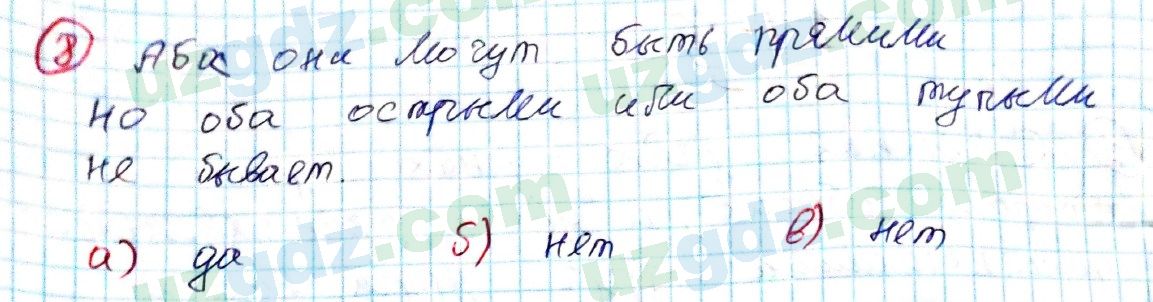 8 Аба они могут быть прямыми
но оба острыми или оба тупыми
не бывает.
а) да б) нет в) нет
uzgdz.com